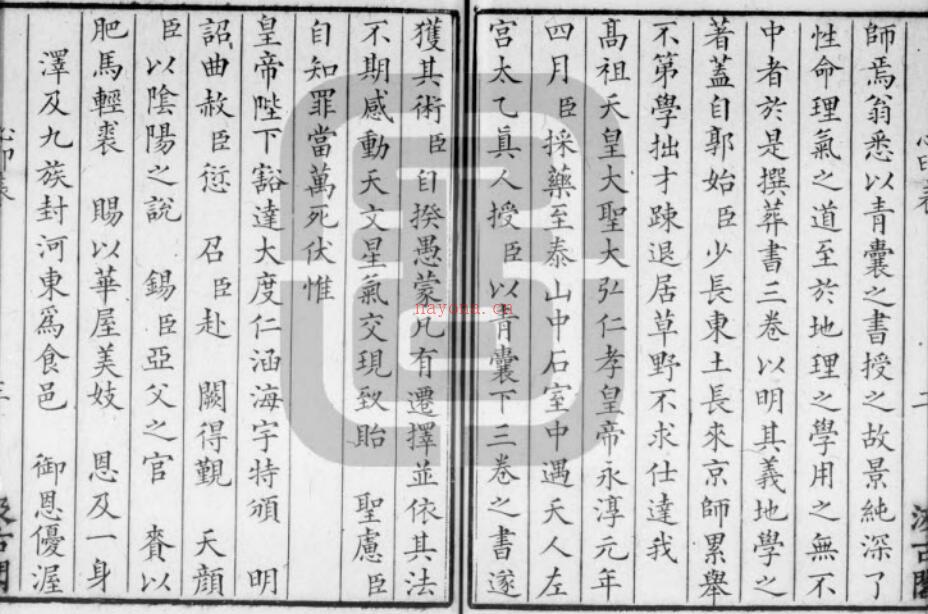 師焉翁悉以青囊之書授之故景純深了
性命理氣之道至於地理之學用之無不
中者於是撰葬書三卷以明其義地學之
著蓋自郭始臣少長東土長來京師累舉
不第學拙才踈退居草野不求仕達我
高祖天皇大聖大弘仁孝皇帝永淳元年
四月臣採藥至泰山中石室中遇天人左
宫太乙眞人授臣以青囊下三卷之書遂
獲其術臣自揆愚蒙凡有遷擇並依其法
不期感動天文星氣交現致貽 聖慮臣
自知罪當萬死伏惟
皇帝陛下豁達大度仁涵海宇特頒 明
詔曲赦臣愆 召臣赴 闕得覲 天顔
臣以隂陽之說 錫臣亞父之官 賚以
肥馬輕裘 賜以華屋美妓 恩及一身
澤及九族封河東爲食邑 御恩優渥
nayona.cn